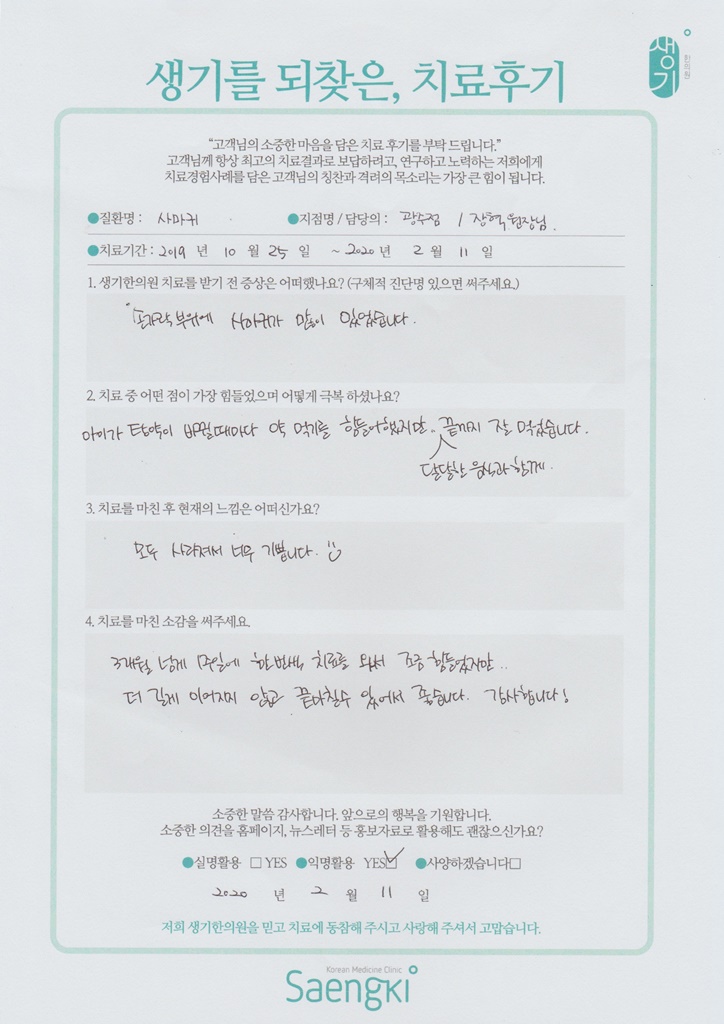 생기를 되찾은, 치료후기
생기
한의원
"고객님의 소중한 마음을 담은 치료 후기를 부탁 드립니다."
고객님께 항상 최고의 치료결과로 보답하려고, 연구하고 노력하는 저희에게
치료경험사례를 담은 고객님의 칭찬과 격려의 목소리는 가장 큰 힘이 됩니다.
●질환명 : 사마귀 ●지점명 / 담당의 : 광수점 / 장혁 원장님.
●치료기간 : 2019 년 10 월 25 일 ~ 2020 년 2 월 11 일
1. 생기한의원 치료를 받기 전 증상은 어떠했나요? (구체적 진단명 있으면 써주세요.)
손가락 부위에 사마귀가 많이 있었습니다.
2. 치료 중 어떤 점이 가장 힘들었으며 어떻게 극복 하셨나요?
아이가 탕약이 바뀔때마다 약 먹기를 힘들어했지만.. 끝까지 잘 먹었습니다.
달달한 음식과 함께.
3. 치료를 마친 후 현재의 느낌은 어떠신가요?
모두 사라져서 너무 기쁩니다.
4. 치료를 마친 소감을 써주세요.
3개월 넘게 일에 한번씩 치료를 와서 조금 힘들었지만..
더 길게 이어지지 않고 끝마칠수 있어서 좋습니다. 감사합니다!
소중한 말씀 감사합니다. 앞으로의 행복을 기원합니다.
소중한 의견을 홈페이지, 뉴스레터 등 홍보자료로 활용해도 괜찮으신가요?
●실명활용 □ YES ●익명활용 YES☑ ●사양하겠습니다□
2020 년 2 월 11 일
저희 생기한의원을 믿고 치료에 동참해 주시고 사랑해 주셔서 고맙습니다.
Korean Medicine Clinic
Saengki